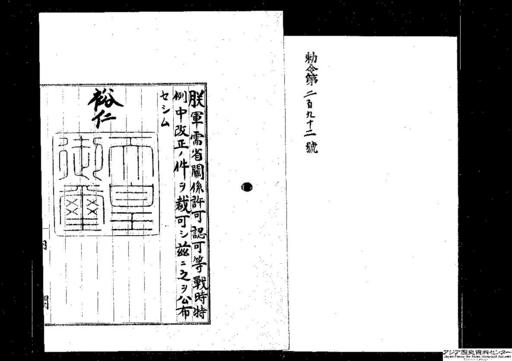 勅令第二百九十二號
朕軍需省關係許可認可等戰時特
例中改正ノ件ヲ裁可シ茲ニ之ヲ公布
セシム
裕仁
天皇
御璽
アジア歴史資料センター